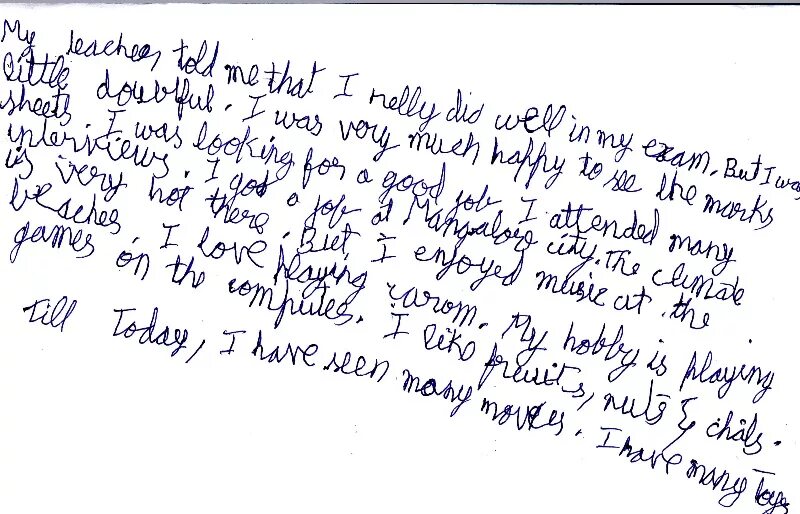 My teacher, told me that I relly did well in my exam. But I was
little doubtful. I was very much happy to see the marks
sheets. I was looking for a good job. I attended many
interviews. I got a job at Mangalore city. The climate
is very hot there. But, I enjoyed music at the
beaches. I love playing carom. My hobby is playing
games on the computer. I like fruits, nuts & chats.
Till Today, I have seen many movies. I have many Toys